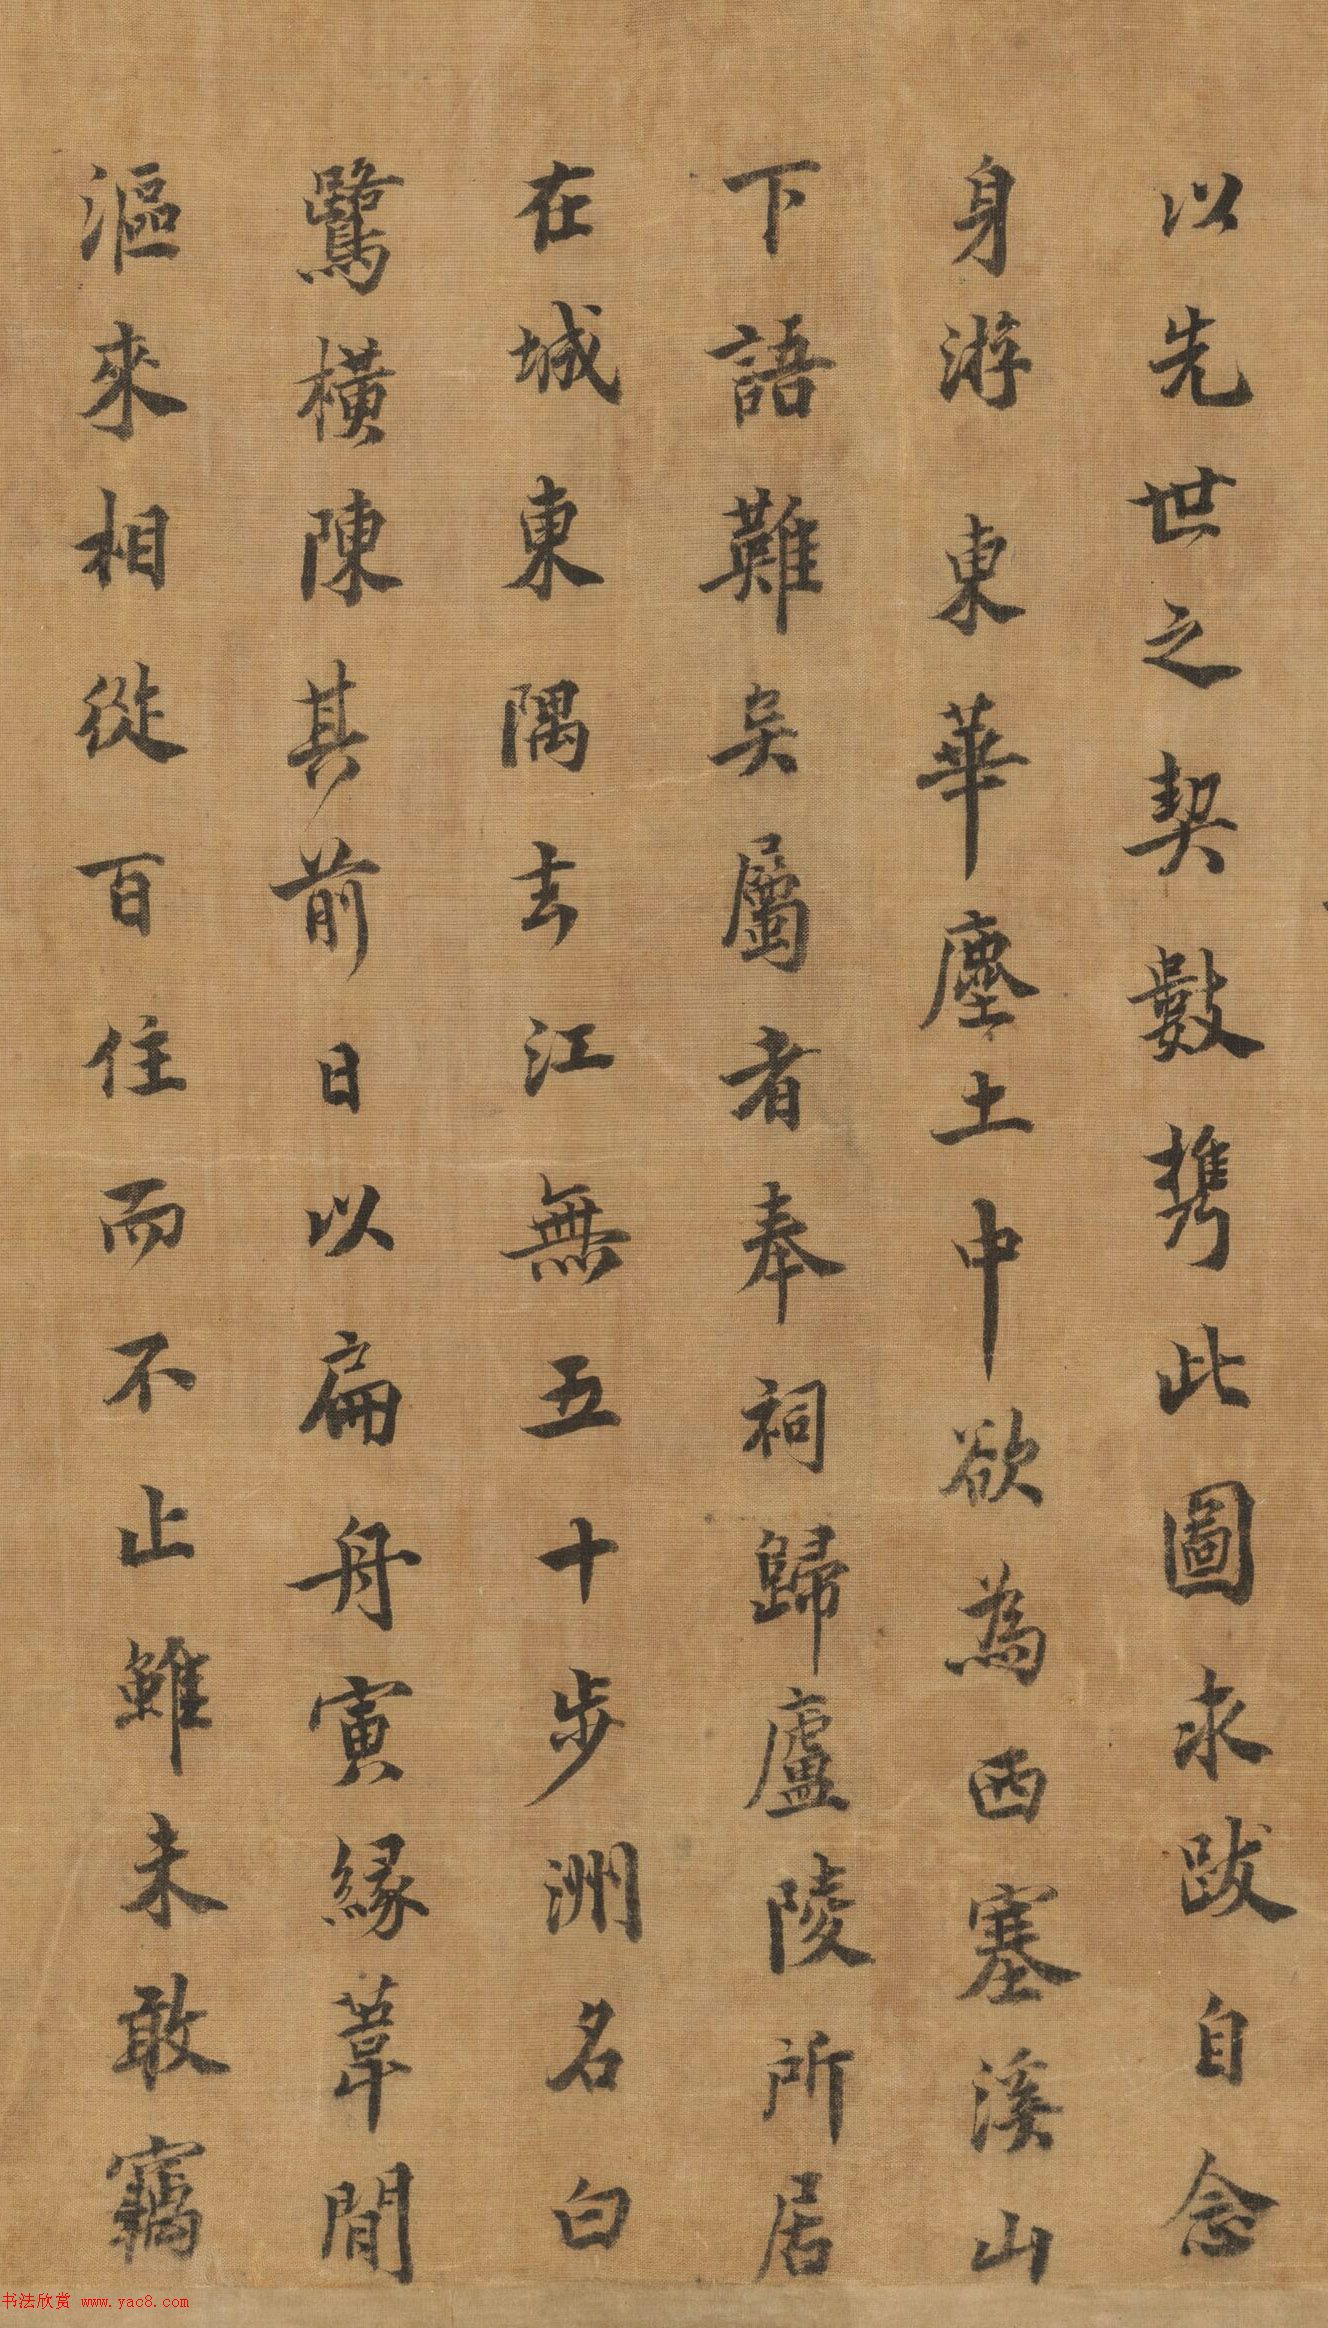 以先世之契數攜此圖求跋自念
身游東華塵土中欲為西塞溪山
下語難矣屬者奉祠歸廬陵所居
在城東隅去江無五十步洲名白
鷺橫陳其前日以扁舟寅緣葦間
漚來相從百住而不止雖未敢竊
书法欣赏 www.yac8.com